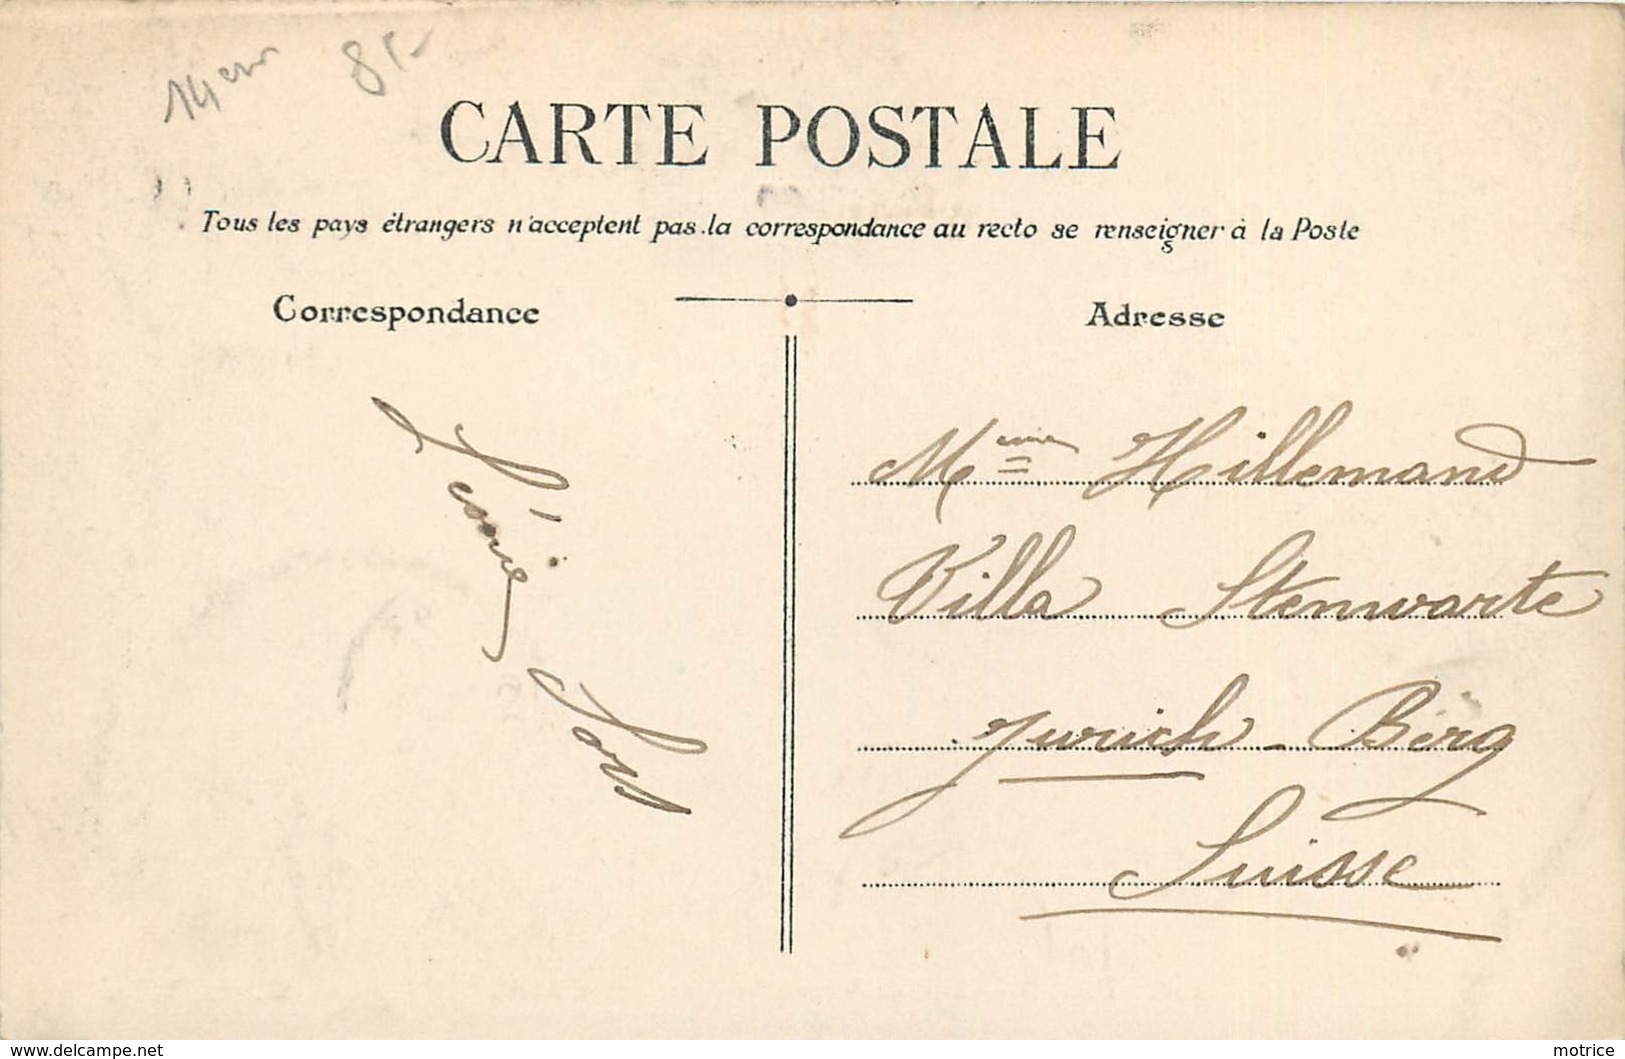 14 85-
CARTE POSTALE
Tous les pays étrangers n'acceptent pas la correspondance au recto se renseigner à la Poste
s
Correspondance
Adresse
Mme Hillemand
Villa Stenwarte
Zurich-Berg
Suisse
www.delcampe.net
motrice